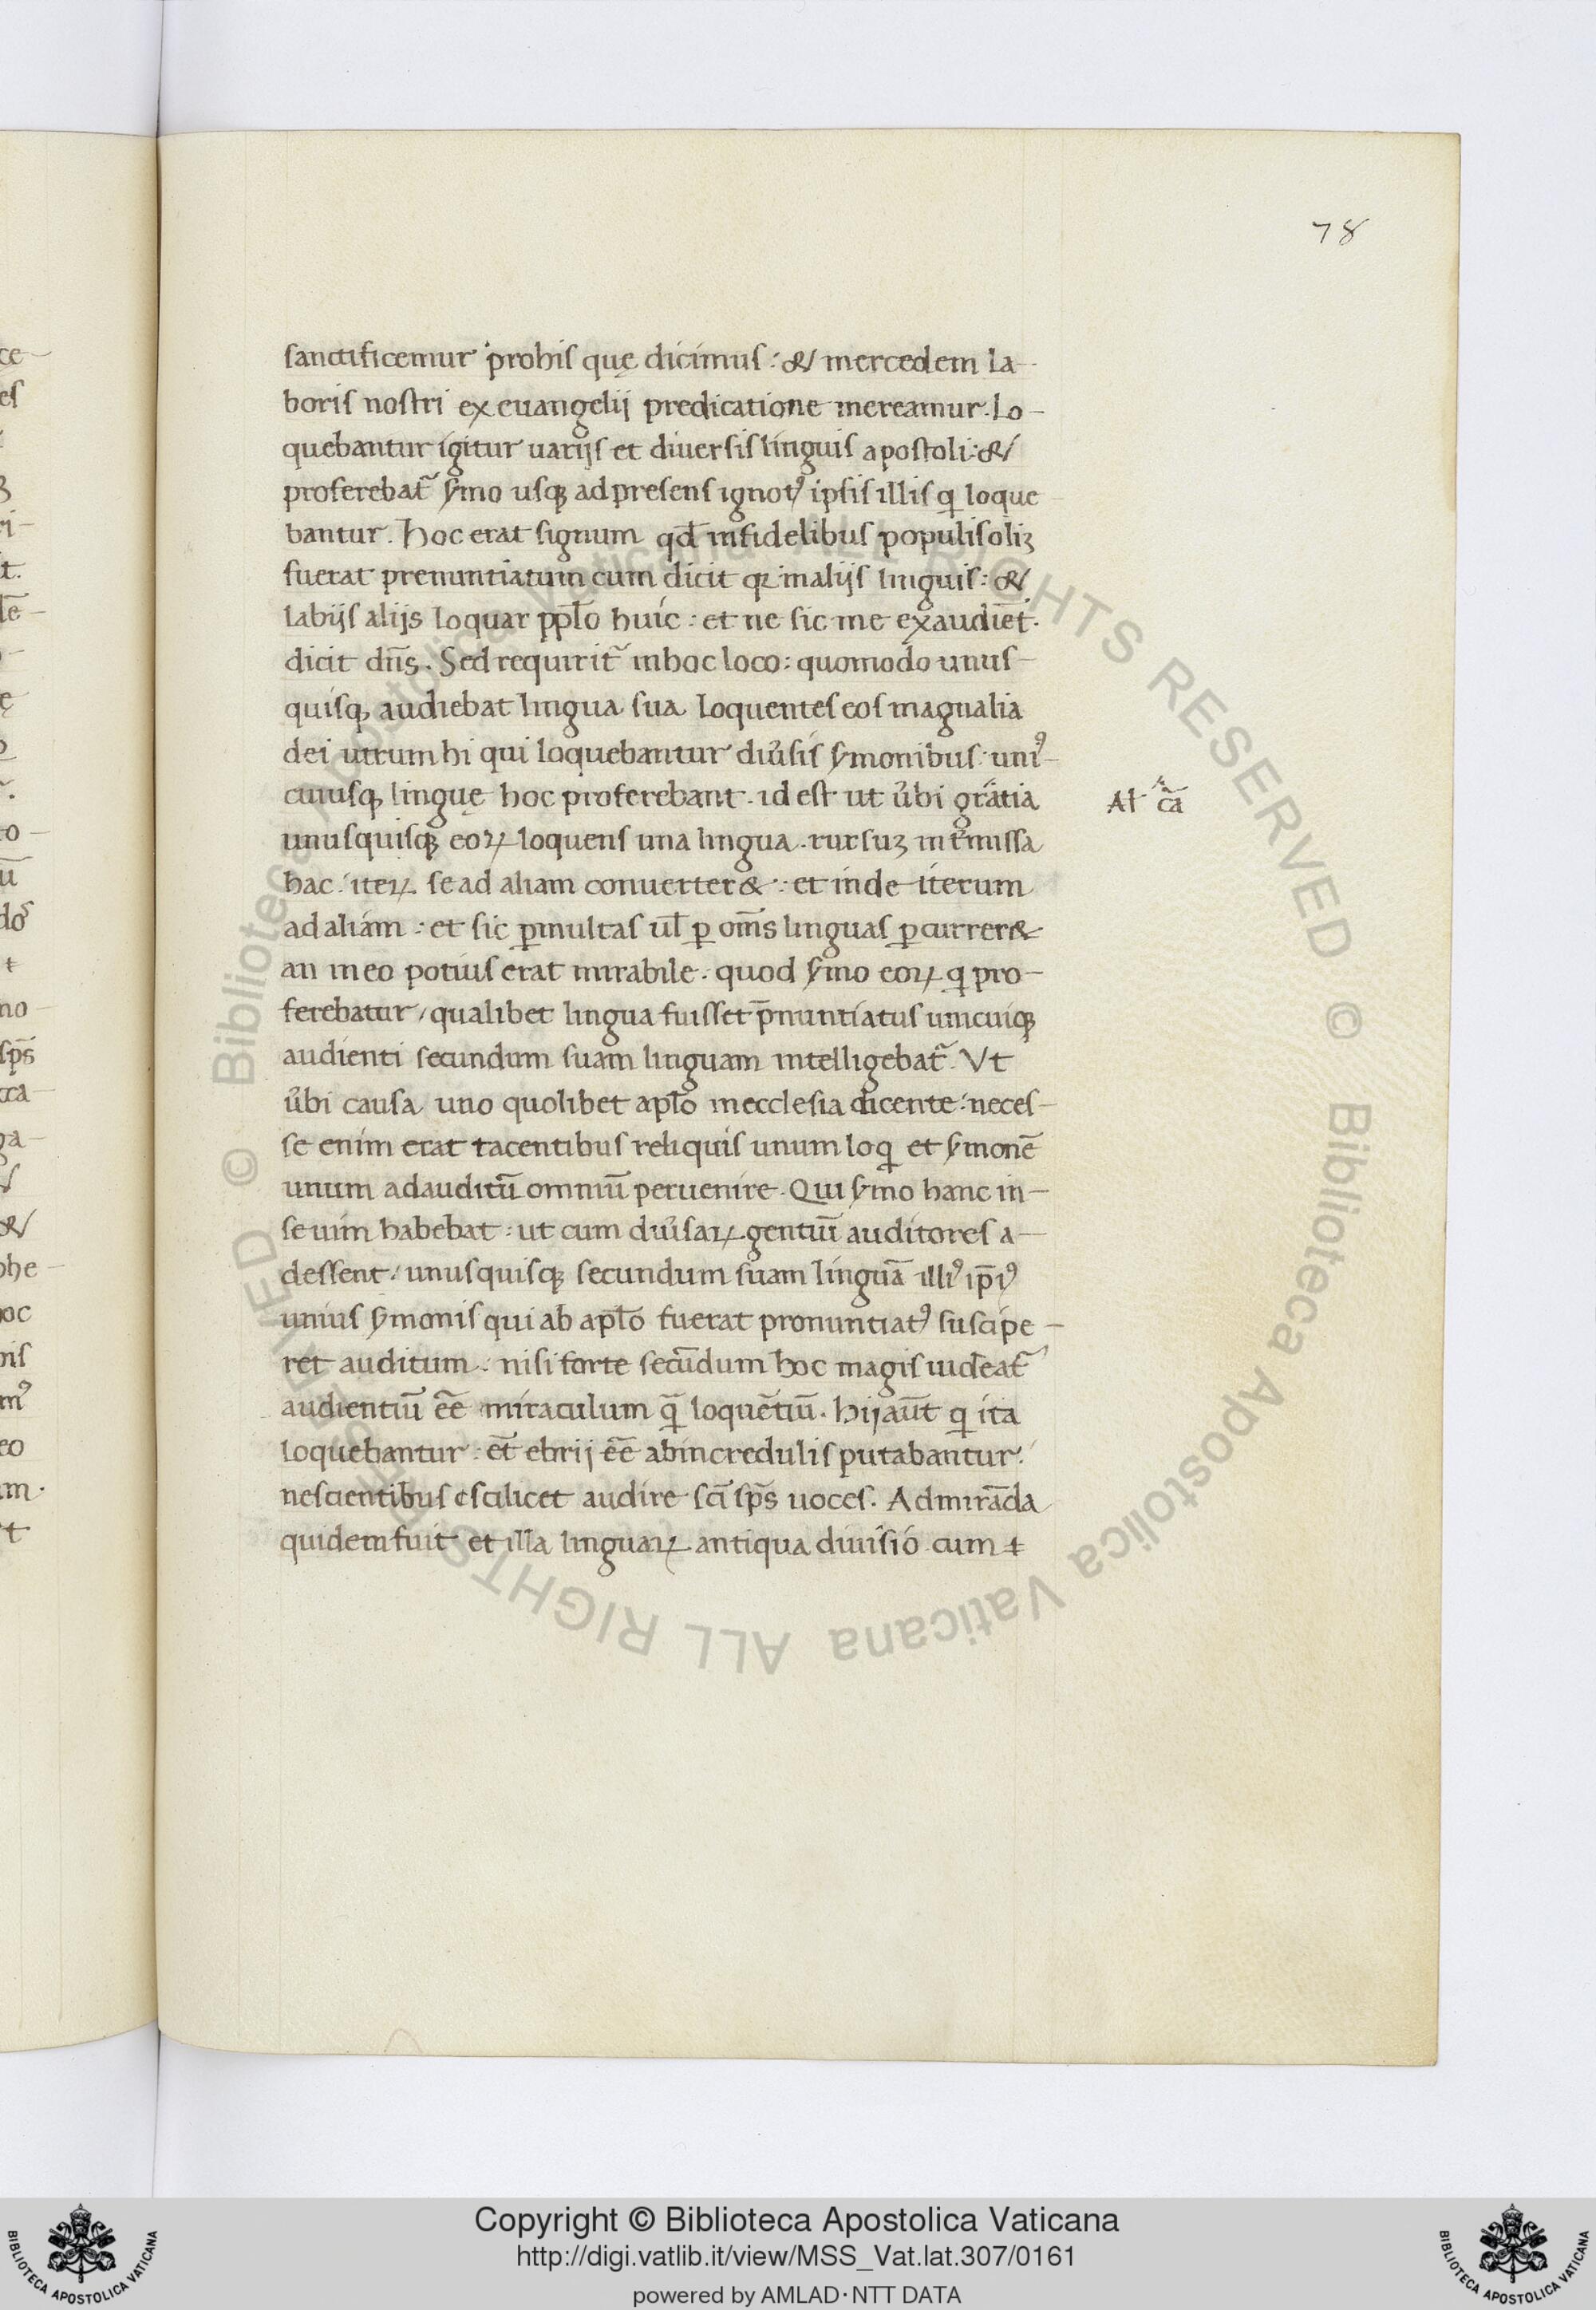 78
sanctificemur prohis quę dicimus: & mercedem la-
boris nostri ex euangelij predicatione mereamur. Lo-
quebantur igitur uarijs et diuersis linguis apostoli: &
proferebat᷑ s̃mo usqꝫ ad presens ignotꝰ ipsis illis q̃ loque
bantur. hoc erat signum qđ infidelibus populis oliꝫ
fuerat prenuntiatum cum dicit qꝛ in alijs linguis: &
labijs alijs loquar pp̄lo huic: et ne sic me exaudiēt.
dicit dn̄s. Sed requirit᷑ inhoc loco: quomodo unus-
quisqꝫ audiebat lingua sua loquentes eos magnalia
dei utrum hi qui loquebantur diu̓sis s̃monibus: uniꝰ-
cuiusqꝫ linguę hoc proferebant. id est ut u̓bi gratia
Al cā
unusquisqꝫ eoꝝ loquens una lingua. rursuꝫ int̓missa
hac: iteꝝ se ad aliam conuerter&: et inde iterum
ad aliam: et sic ꝑmultas ul̄ ꝑ om̄s linguas ꝑcurrer&
an in eo potius erat mirabile. quod s̃mo eoꝝ q̃ pro-
ferebatur, qualibet lingua fuisset p̄nuntiatus unicuiqꝫ
audienti secundum suam linguam intelligebat᷑. Vt
u̓bi causa uno quolibet apl̄o inecclesia dicente: neces-
se enim erat tacentibus reliquis unum loq̃ et s̃monē
unum adauditū omniū peruenire. Qui s̃mo hanc in-
se uim habebat: ut cum diu̓saꝝ gentiū auditores a-
dessent: unusquisqꝫ secundum suam linguā illiꝰ ip̄iꝰ
unius s̃monis qui ab apl̄o fuerat pronuntiatꝰ suscipe-
ret auditum: nisi forte secūdum hoc magis uideat᷑
audientiū ēe miraculum q̃ loquētiū. hij aūt q̃ ita
loquebantur: et̄ ebrij ēe abincredulis putabantur:
nescientibus scilicet audire sc̄i sp̄s uoces. Admirāda
quidem fuit et illa linguaꝝ antiqua diuisio cum ⁊
Copyright © Biblioteca Apostolica Vaticana
http://digi.vatlib.it/view/MSS_Vat.lat.307/0161
powered by AMLAD·NTT DATA